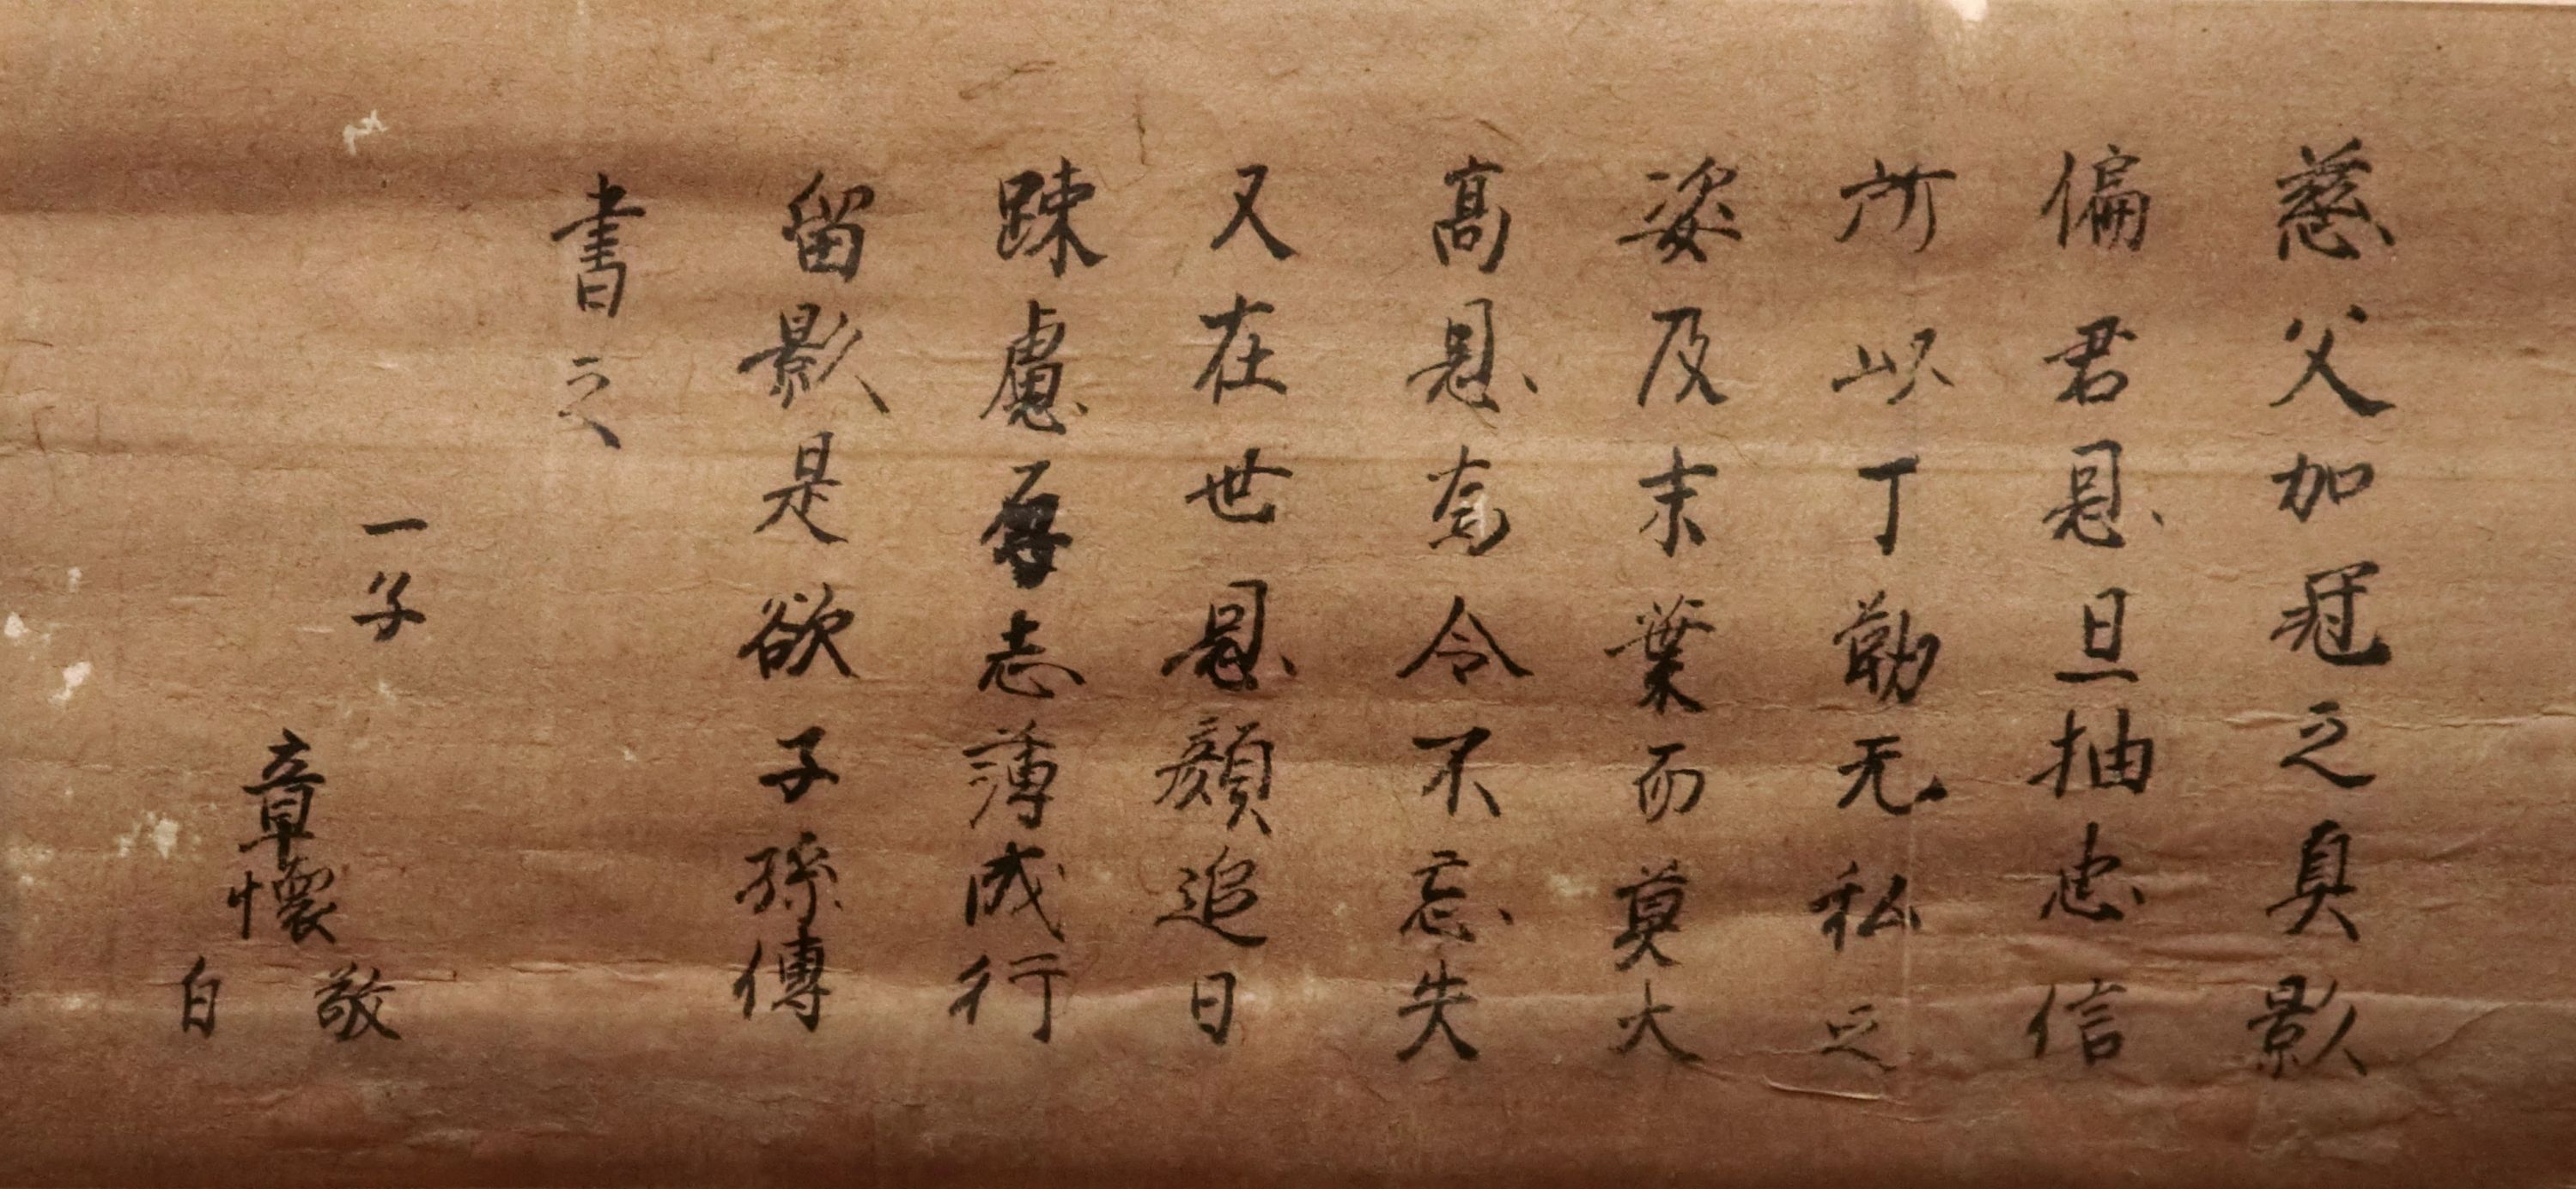 慈父加冠之真影
偏君恩旦抽忠信
所以丁勤无私之
姿及末葉而莫大
高恩奝令不忘失
又在世恩顔追日
踈慮每志薄成行
留影是欲子孫傳
書之
一子
章懷
敬
白